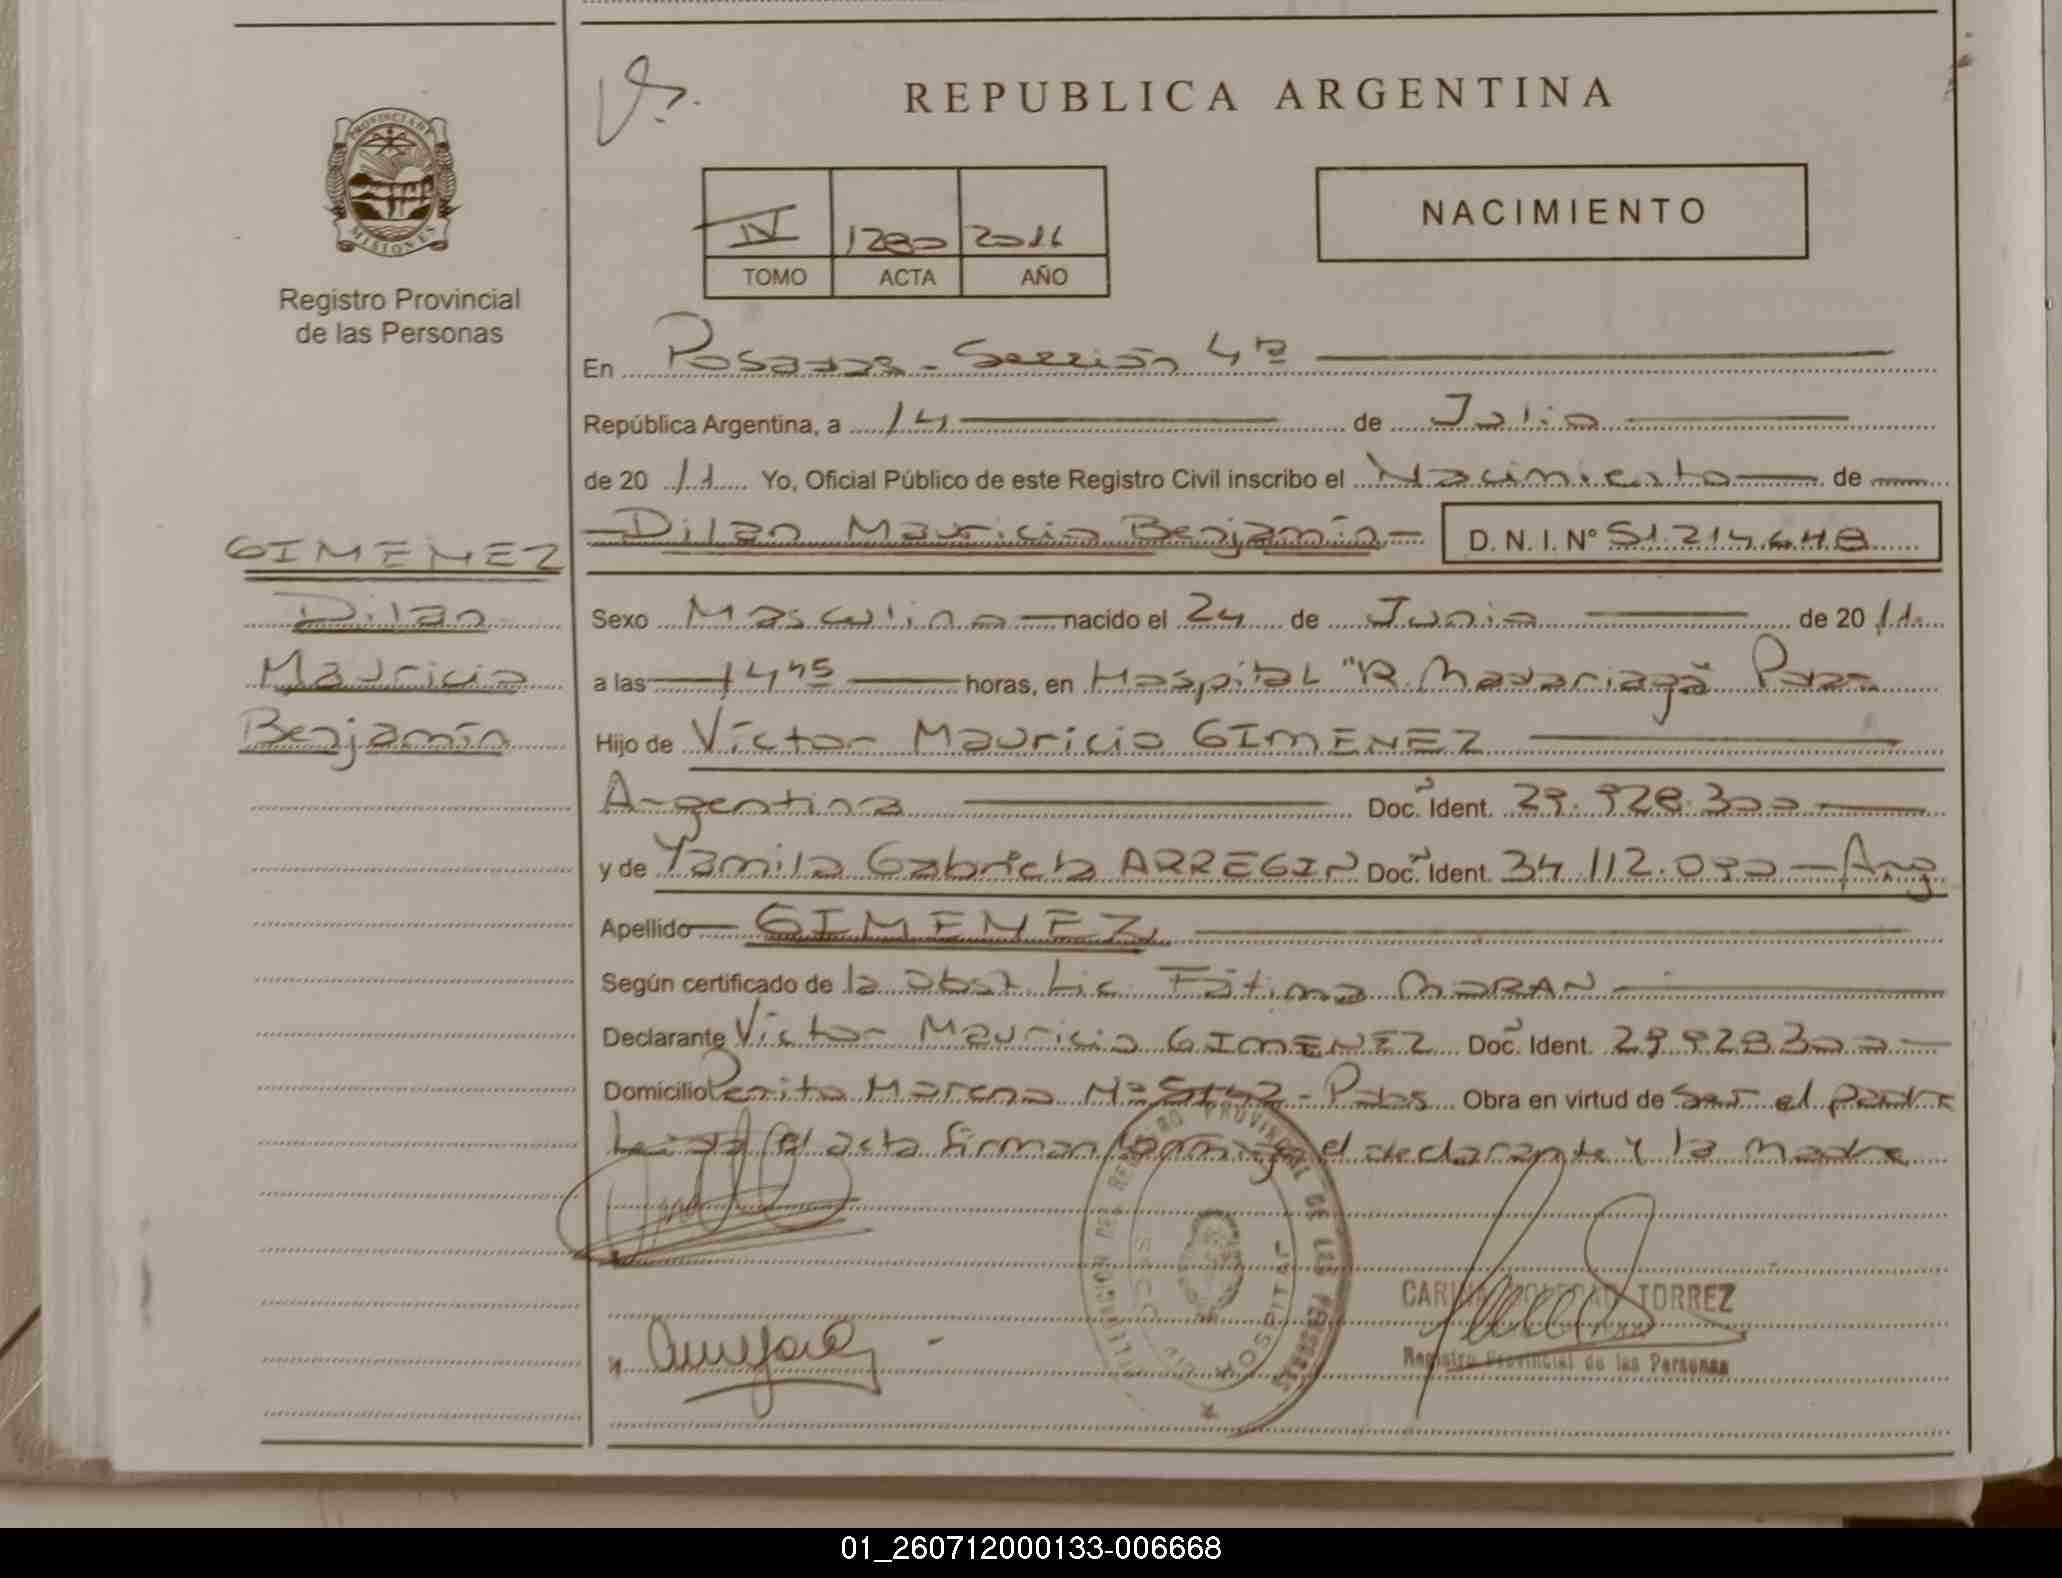 REPUBLICA ARGENTINA
PROVINCIA DE MISIONES
Registro Provincial
de las Personas
NACIMIENTO
IV 1280 2011
TOMO ACTA AÑO
En Posadas - Sección 4ª
República Argentina, a 14 de Julio
de 20 11 Yo, Oficial Público de este Registro Civil inscribo el Nacimiento de
Dilan Mauricio Benjamín D. N. I. Nº 51.214.648
GIMENEZ
Dilan
Mauricio
Benjamín
Sexo Masculino nacido el 24 de Junio de 20 11
a las 14 45 horas, en Hospital "R. Madariaga" Pdas
Hijo de Víctor Mauricio GIMENEZ
Argentina Doc. Ident. 29.928.300
y de Yamila Gabriela ARREGIN Doc. Ident. 34.112.090 - Arg
Apellido GIMENEZ
Según certificado de la obst. Lic. Fátima MORAN
Declarante Víctor Mauricio GIMENEZ Doc. Ident. 29.928.300
Domicilio Perito Moreno Nº 5142 - Pdas Obra en virtud de ser el padre
Leída el acta firman conmigo el declarante y la madre
PROVINCIAL DE LAS PERSONAS
HOSPITAL
CARINA SOLEDAD TORREZ
Registro Provincial de las Personas
01_260712000133-006668